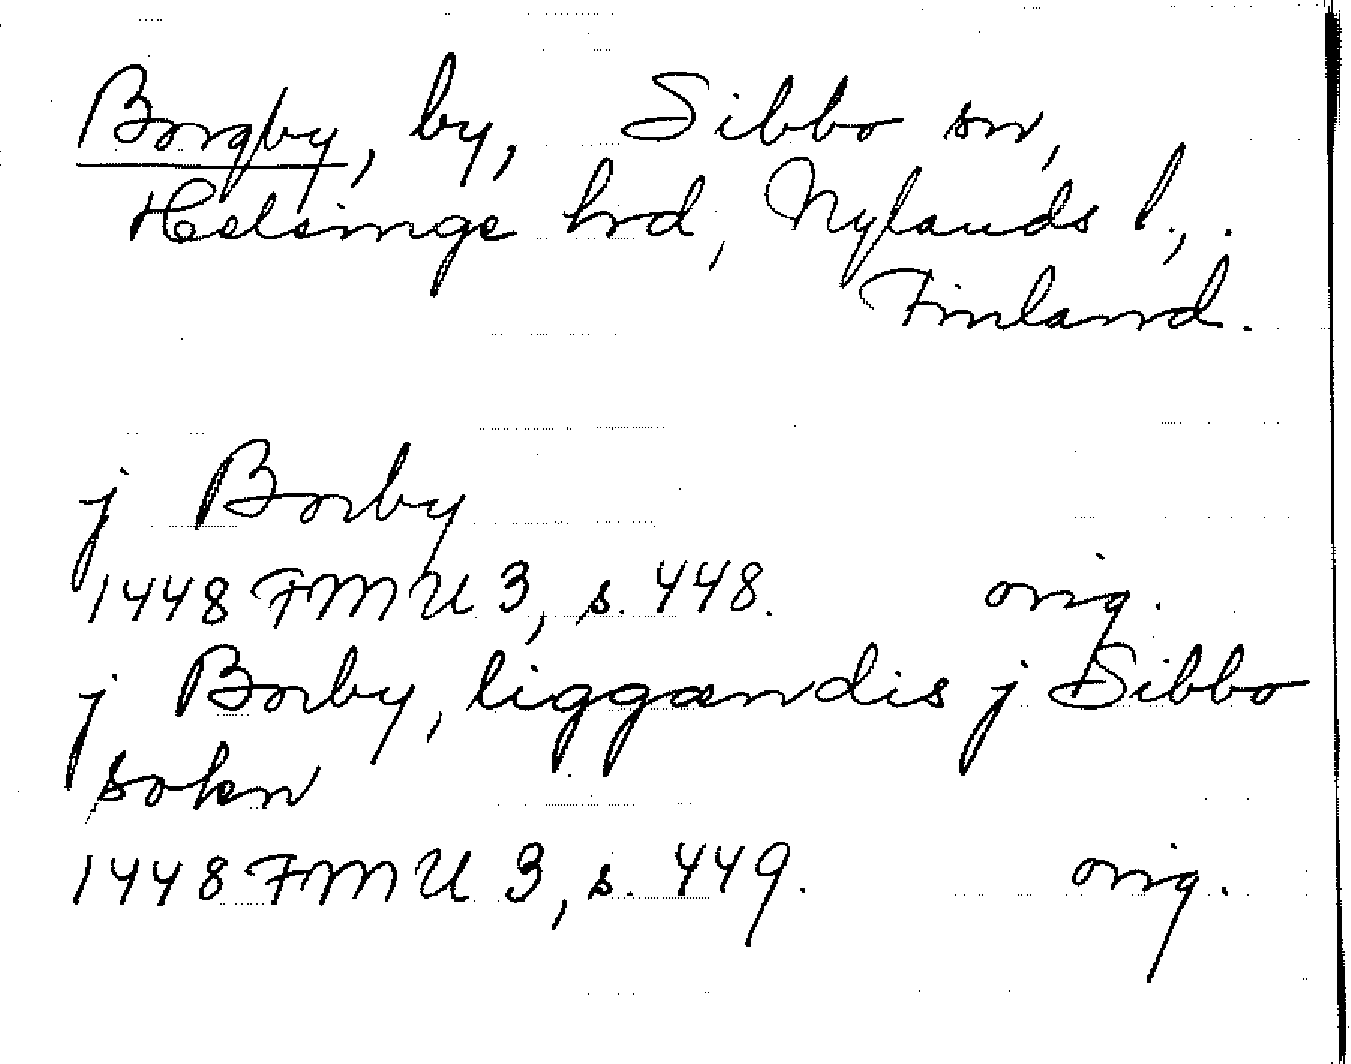 Borgby, by, Sibbo sn,
Helsinge hrd, Nylands l.,.
Finland.
j Borby
1448 FMU 3, s. 448. orig.
j Borby, liggandis j Sibbo
sokn
1448 FMU 3, s. 449. orig.